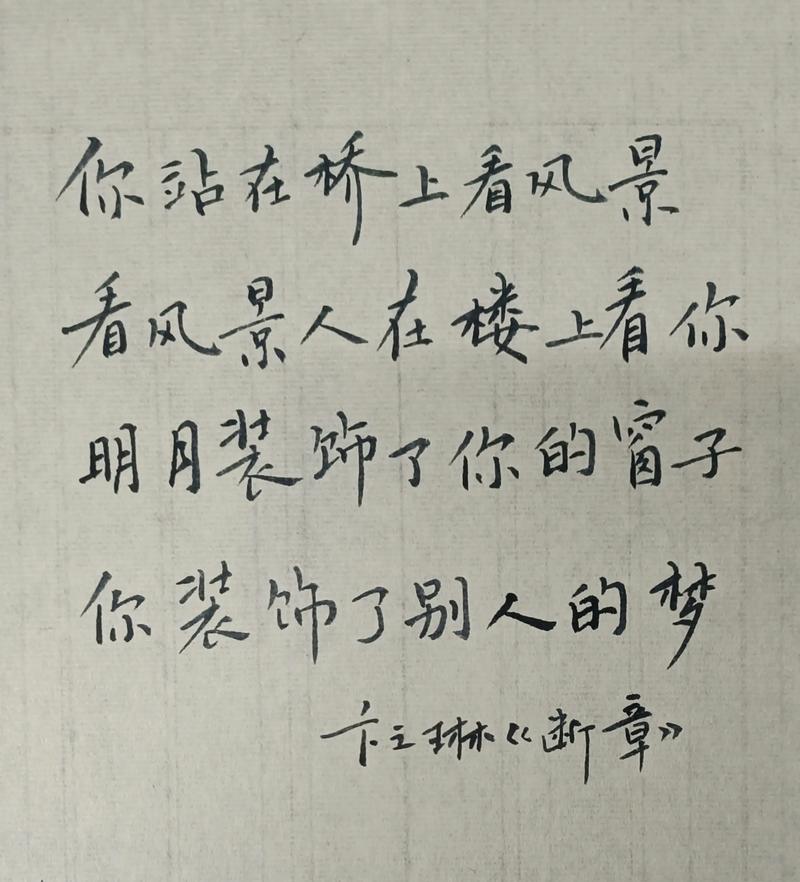 你站在桥上看风景
看风景人在楼上看你
明月装饰了你的窗子
你装饰了别人的梦
卞之琳《断章》